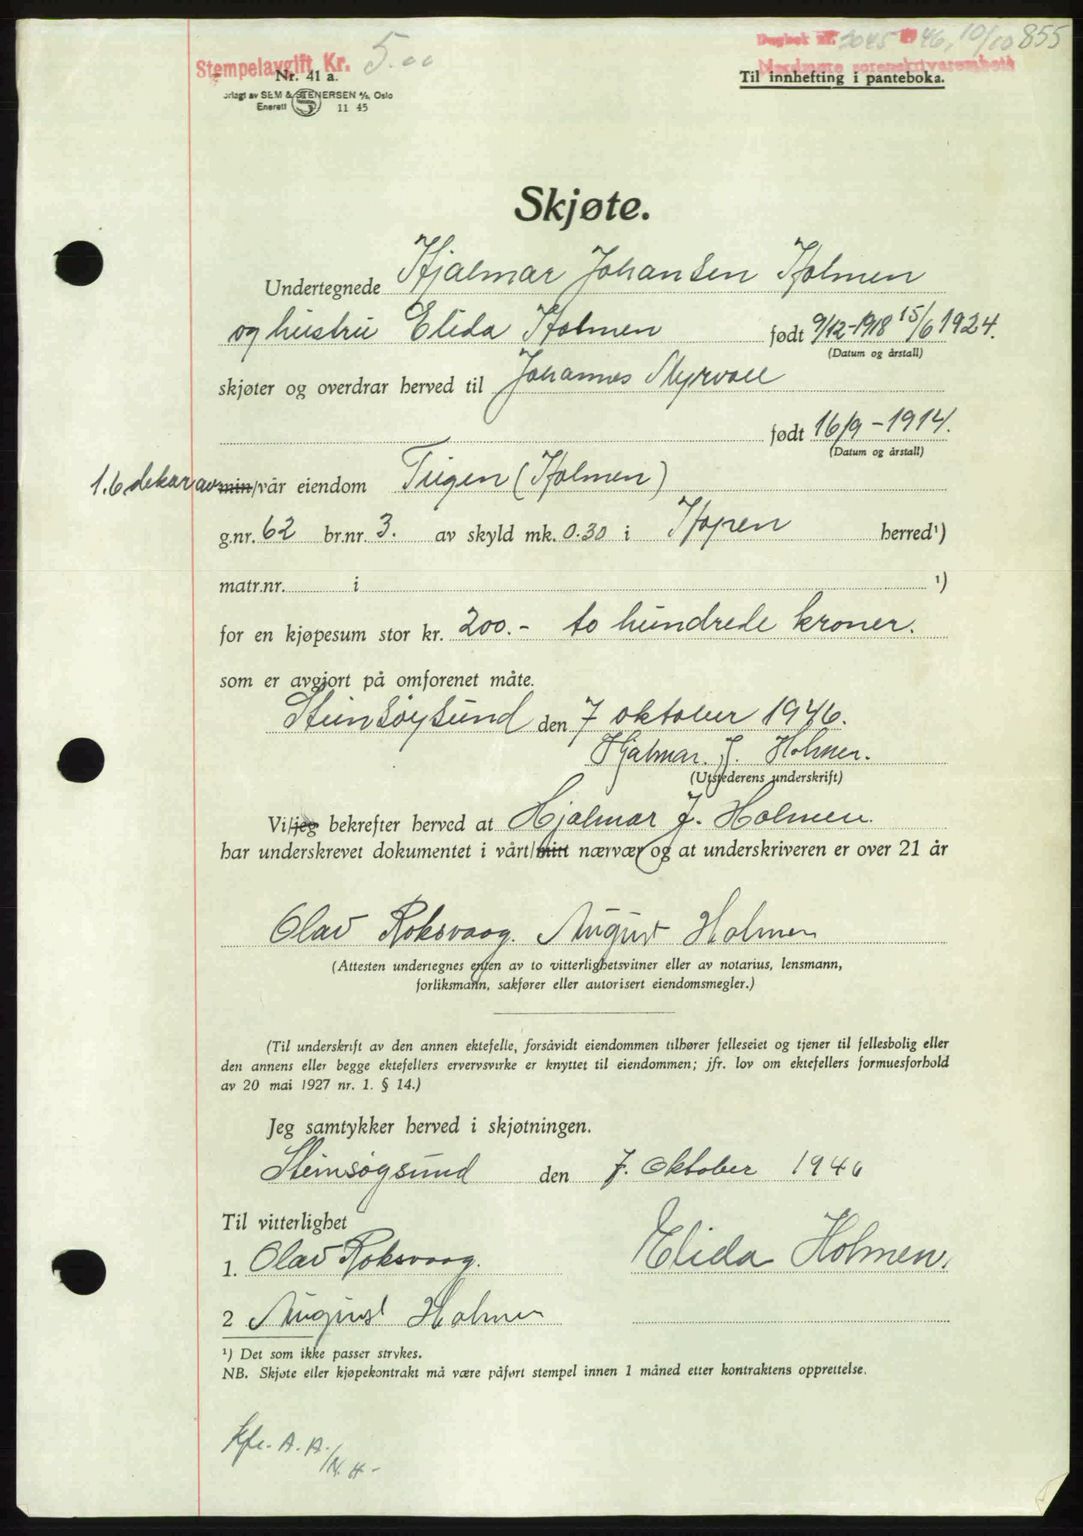 Stempelavgift Kr. 5.00
Dagbok nr. 2045 1946, 10/10 855
Nordmøre sorenskriverembete
Nr. 41 a.
Til innhefting i panteboka.
orlagt av SEM & STENERSEN A/S, Oslo
Enerett S 11 45
Skjøte.
Undertegnede Hjalmar Johansen Holmen
og hustru Elida Holmen født 9/12-1918 15/6 1924.
(Datum og årstall)
skjøter og overdrar herved til Johannes Myrvoll
født 16/9 - 1914.
(Datum og årstall)
1.6 dekar av min/vår eiendom Teigen (Holmen)
g.nr. 62 br.nr. 3. av skyld mk. 0.30 i Hopen herred¹)
matr.nr. i ¹)
for en kjøpesum stor kr. 200.- to hundrede kroner.
som er avgjort på omforenet måte.
Steinsøysund den 7 oktober 1946.
Hjalmar. J. Holmen.
(Utstederens underskrift)
Vi/jeg bekrefter herved at Hjalmar J. Holmen.
har underskrevet dokumentet i vårt/mitt nærvær og at underskriveren er over 21 år
Olav Roksvaag. August Holmen
(Attesten undertegnes enten av to vitterlighetsvitner eller av notarius, lensmann,
forliksmann, sakfører eller autorisert eiendomsmegler.)
(Til underskrift av den annen ektefelle, forsåvidt eiendommen tilhører felleseiet og tjener til fellesbolig eller
den annens eller begge ektefellers ervervsvirke er knyttet til eiendommen; jfr. lov om ektefellers formuesforhold
av 20 mai 1927 nr. 1. § 14.)
Jeg samtykker herved i skjøtningen.
Steinsøysund den 7. Oktober 1946
Til vitterlighet
1. Olav Roksvaag. Elida Holmen.
2 August Holmen
¹) Det som ikke passer strykes.
NB. Skjøte eller kjøpekontrakt må være påført stempel innen 1 måned etter kontraktens opprettelse.
Kfr. A. A.
/N. H-